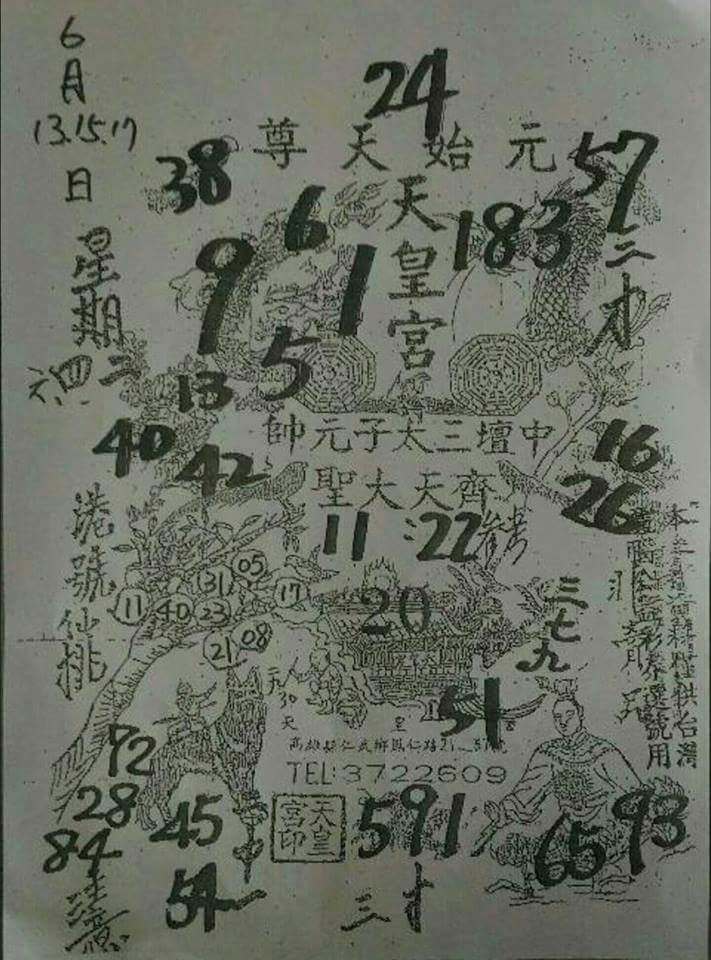 6
月
13.15.17
日
星期
二
四
六
24
元始天尊
38
57
6
天皇宮
183
二才
9
1
5
13
中壇三太子元帥
40
42
16
齊天大聖
26
11
22
參考
港號仙挑
31
05
11
40
23
17
21
08
20
三七九
51
高雄縣仁武鄉鳳仁路
TEL:3722609
72
28
84
注意
45
54
天皇宮印
591
三才
65
93